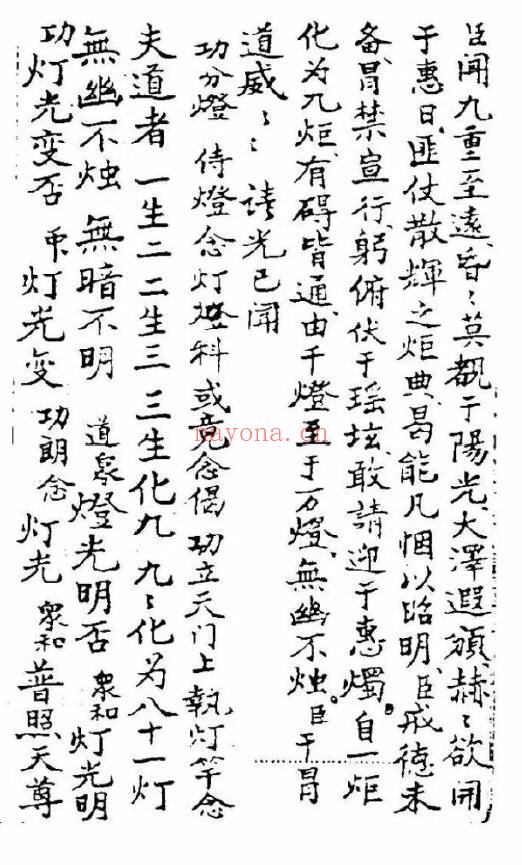 臣闻九重至遠昏〻莫覩于陽光大澤遐頒赫〻欲開
于惠日匪仗散輝之炬典曷能凡悃以昭明臣戒德未
备冒禁宣行躬俯伏于瑶坛敢請迎于惠燭自一炬
化为九炬有碍皆通由千燈至于万燈無幽不烛臣干冒
道威〻〻請光已闻
功分燈 侍燈念灯燈科或竟念偈功立天门上執灯竿念
夫道者一生二二生三三生化九九〻化为八十一灯
無幽不烛無暗不明 道衆燈光明否 衆和灯光明
功灯光变否 灯光变 功朗念灯光 衆和普照天尊
nayona.cn